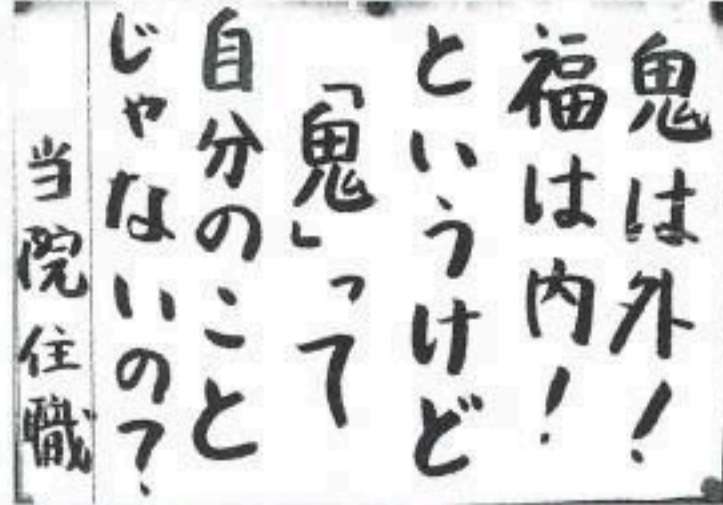 鬼は外!
福は内!
というけど
「鬼」って
自分のこと
じゃないの?
当院住職